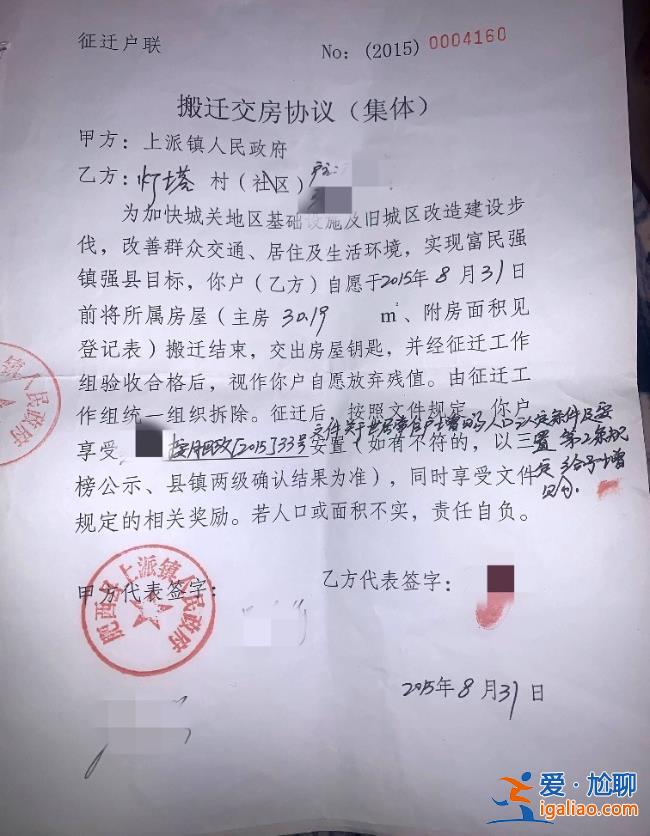 征迁户联
No：(2015) 0004160
搬迁交房协议（集体）
甲方：上派镇人民政府
乙方：灯塔 村（社区）
为加快城关地区基础设施及旧城区改造建设步
伐，改善群众交通、居住及生活环境，实现富民强
镇强县目标，你户（乙方）自愿于2015年8月31日
前将所属房屋（主房 30.19 ㎡、附房面积见
登记表）搬迁结束，交出房屋钥匙，并经征迁工作
组验收合格后，视作你户自愿放弃残值。由征迁工
作组统一组织拆除。征迁后，按照文件规定，你户
享受 [2015]33号 安置（如有不符的，以三
榜公示、县镇两级确认结果为准），同时享受文件
规定的相关奖励。若人口或面积不实，责任自负。
甲方代表签字：
乙方代表签字：
肥西县上派镇人民政府
2015年8月31日
人民政府
爱·尬聊
igaliao.com